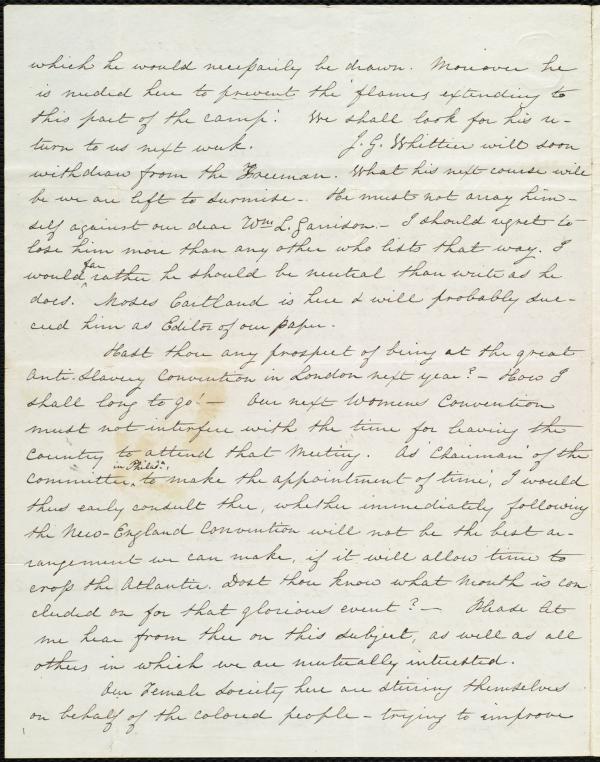 which he would necessarily be drawn. Moreover he
is needed here to prevent the 'flames extending to
this part of the camp'. We shall look for his re-
turn to us next week. J. G. Whittier will soon
withdraw from the Freeman. What his next course will
be we are left to surmise - He must not array him-
self against our dear Wm. L. Garrison - I should regret to
lose him more than any other who lists that way. I
would far rather he should be neutral than write as he
does. Moses Cartland is here & will probably suc-
ceed him as Editor of our paper.
Hast thou any prospect of being at the great
Anti-Slavery Convention in London next year? - How I
shall long to go! - Our next Womens Convention
must not interfere with the time for leaving the
country to attend that Meeting. As 'Chairman' of the
committee in Philada., 'to make the appointment of time', I would
thus early consult thee, whether immediately following
the New-England Convention will not be the best ar-
rangement we can make, if it will allow time to
cross the Atlantic. Dost thou know what month is con
cluded on for that glorious event? - Please let
me hear from thee on this subject, as well as all
others in which we are mutually interested.
Our Female Society here are stirring themselves
on behalf of the colored people - trying to improve